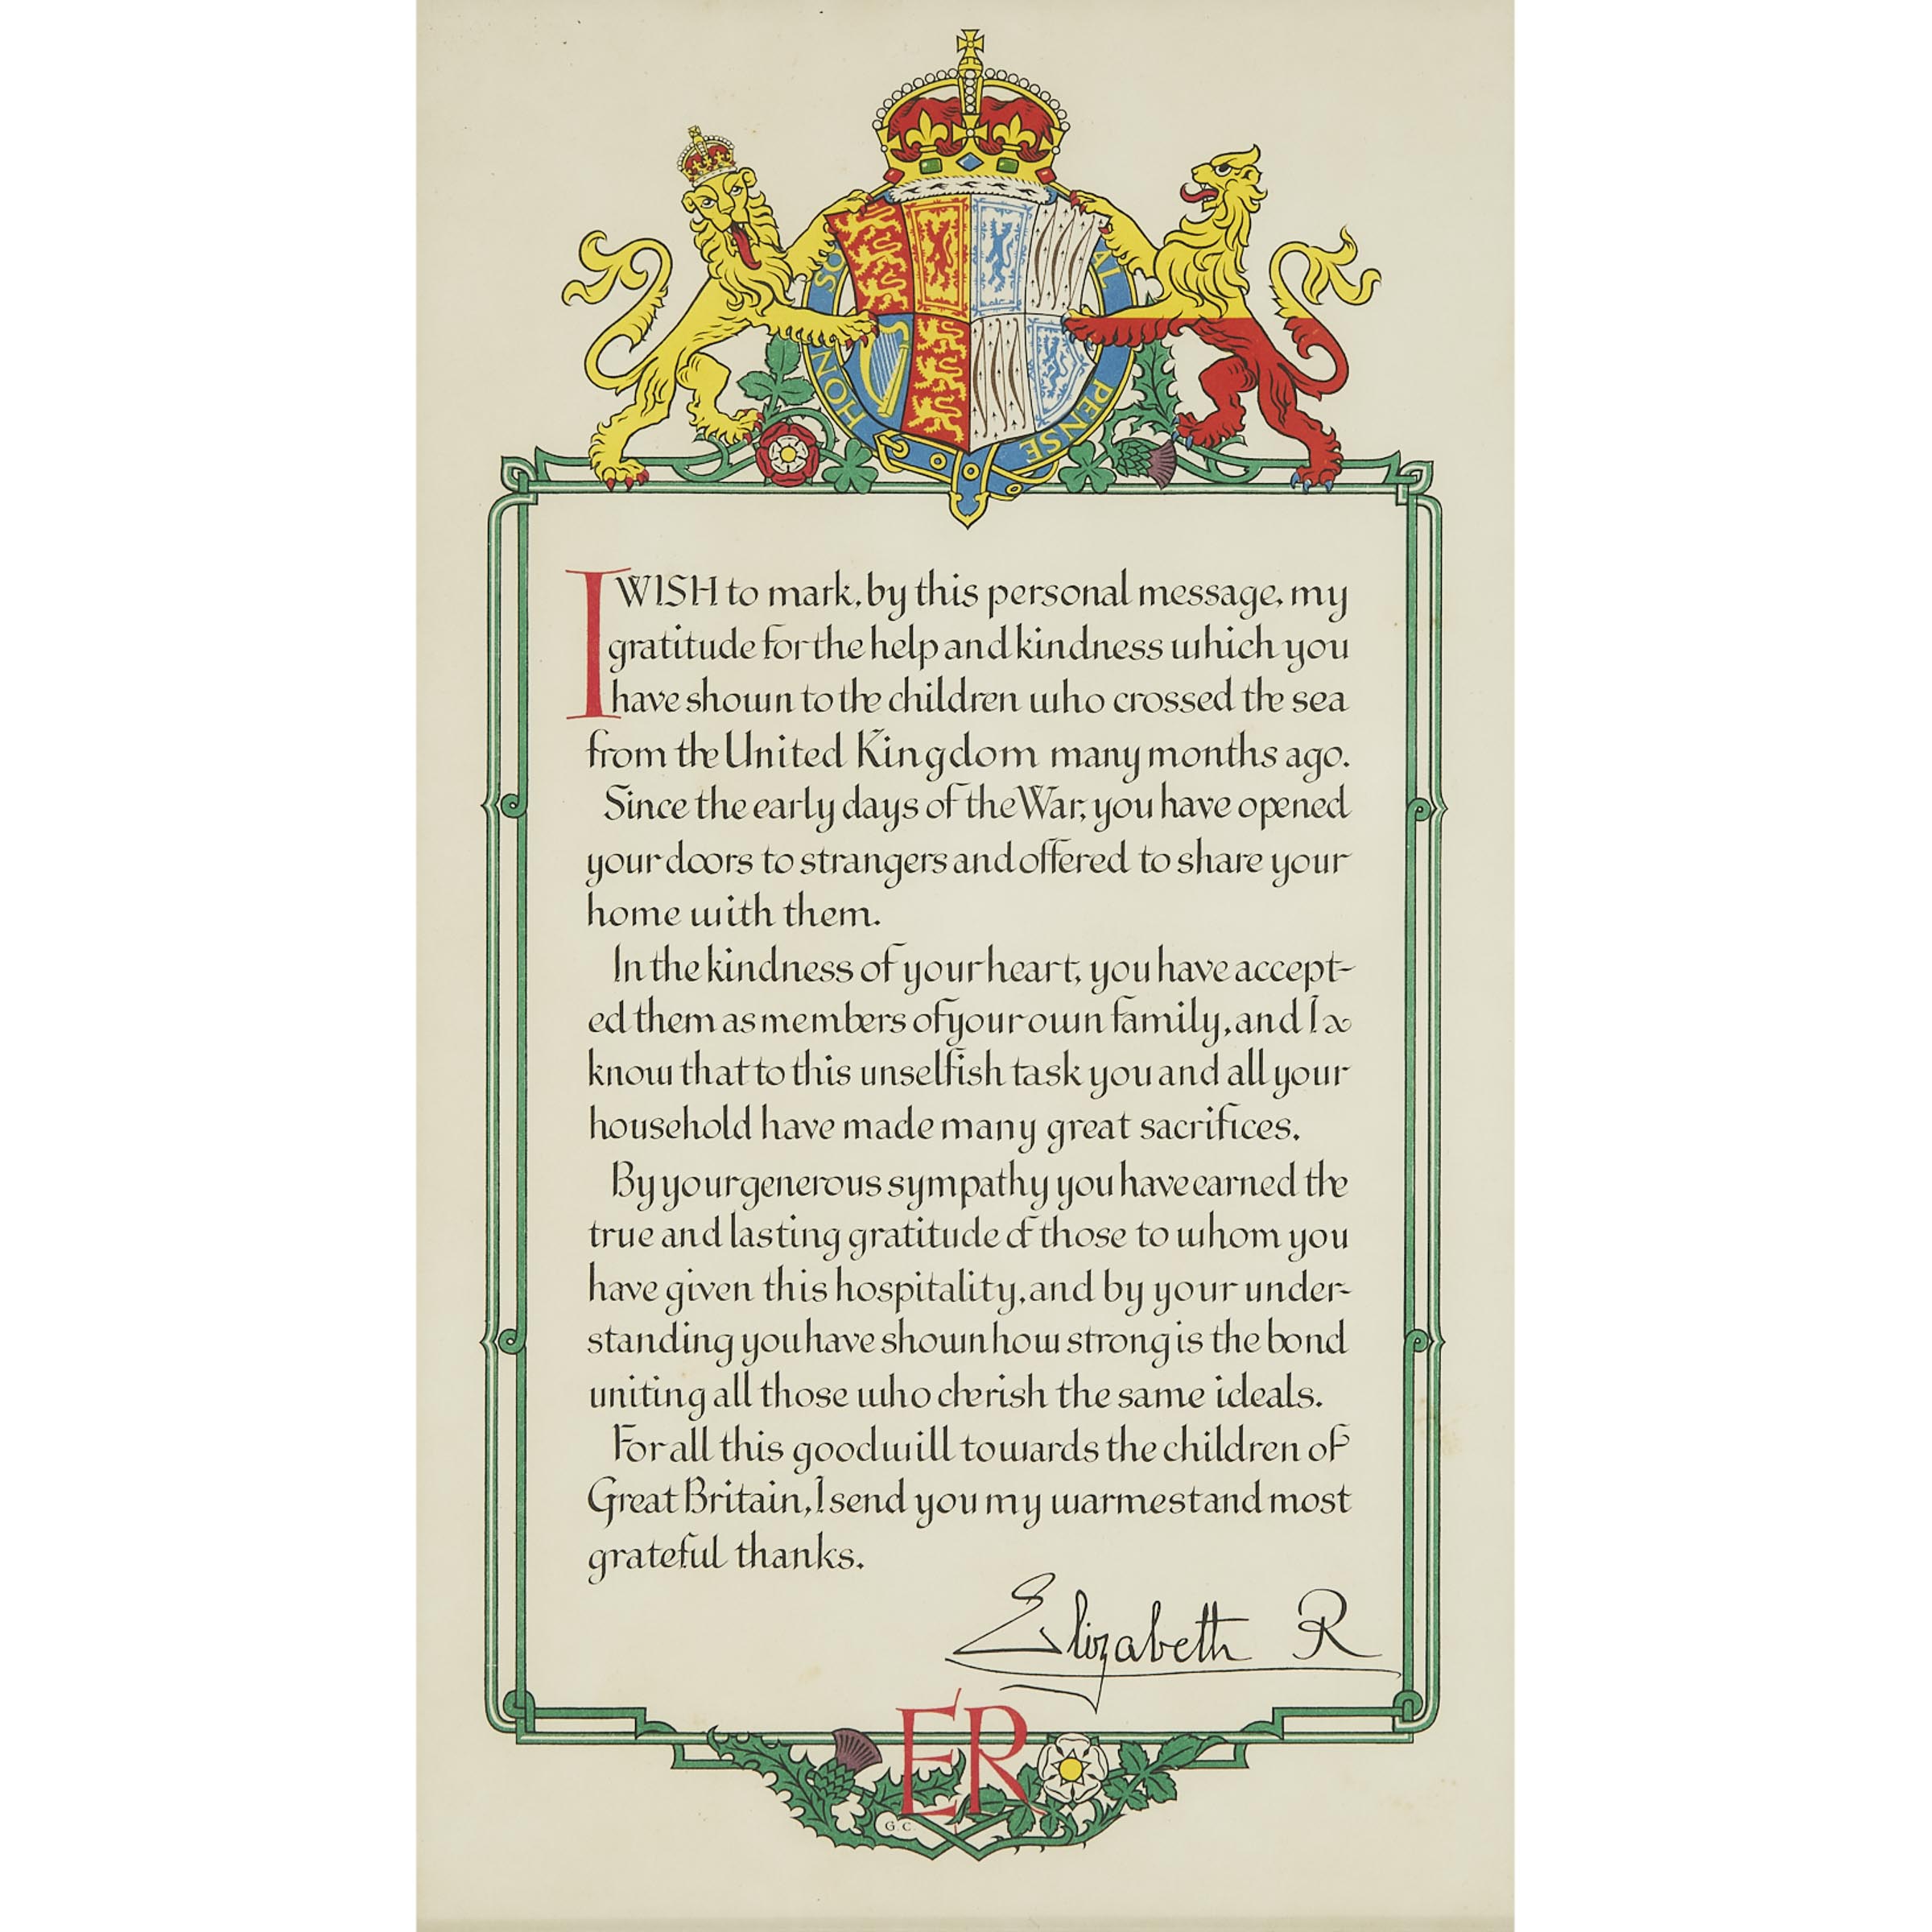 SO
AL
HON
PENSE
I WISH to mark, by this personal message, my
gratitude for the help and kindness which you
have shown to the children who crossed the sea
from the United Kingdom many months ago.
Since the early days of the War, you have opened
your doors to strangers and offered to share your
home with them.
In the kindness of your heart, you have accept-
ed them as members of your own family, and I
know that to this unselfish task you and all your
household have made many great sacrifices.
By your generous sympathy you have earned the
true and lasting gratitude of those to whom you
have given this hospitality, and by your under-
standing you have shown how strong is the bond
uniting all those who cherish the same ideals.
For all this goodwill towards the children of
Great Britain, I send you my warmest and most
grateful thanks.
Elizabeth R
ER
G.C.